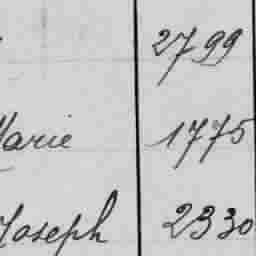 2799
Marie 1775
Joseph 2330